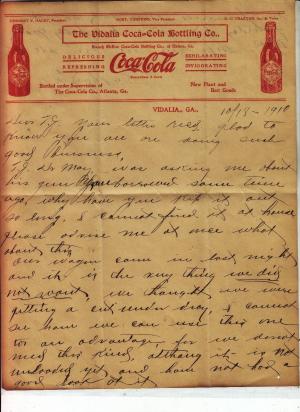 The Vidalia Coca-Cola Bottling Co.,
Branch McRae Coca-Cola Bottling Co., of Helena, Ga.
DELICIOUS
REFRESHING
Coca-Cola
EXHILARATING
INVIGORATING
Bottled under Supervision of
The Coca-Cola Co., Atlanta, Ga.
New Plant and
Best Goods
VIDALIA, GA., 10/13-1910
Your letter recd, glad to
know you are on doing such
good business,
was asking me about
his gun you borrowed some time
ago, why have you kept it out
so long, I cannot find it at home
please advise me at once what
about this
Our wagon came in last night
and it is the very thing we did
not want, we thought we were
getting a cut under dray, I cannot
see how we can use this one
to an advantage, for we dont
need this kind, although it is not
unloaded yet and have not had a
good look at it